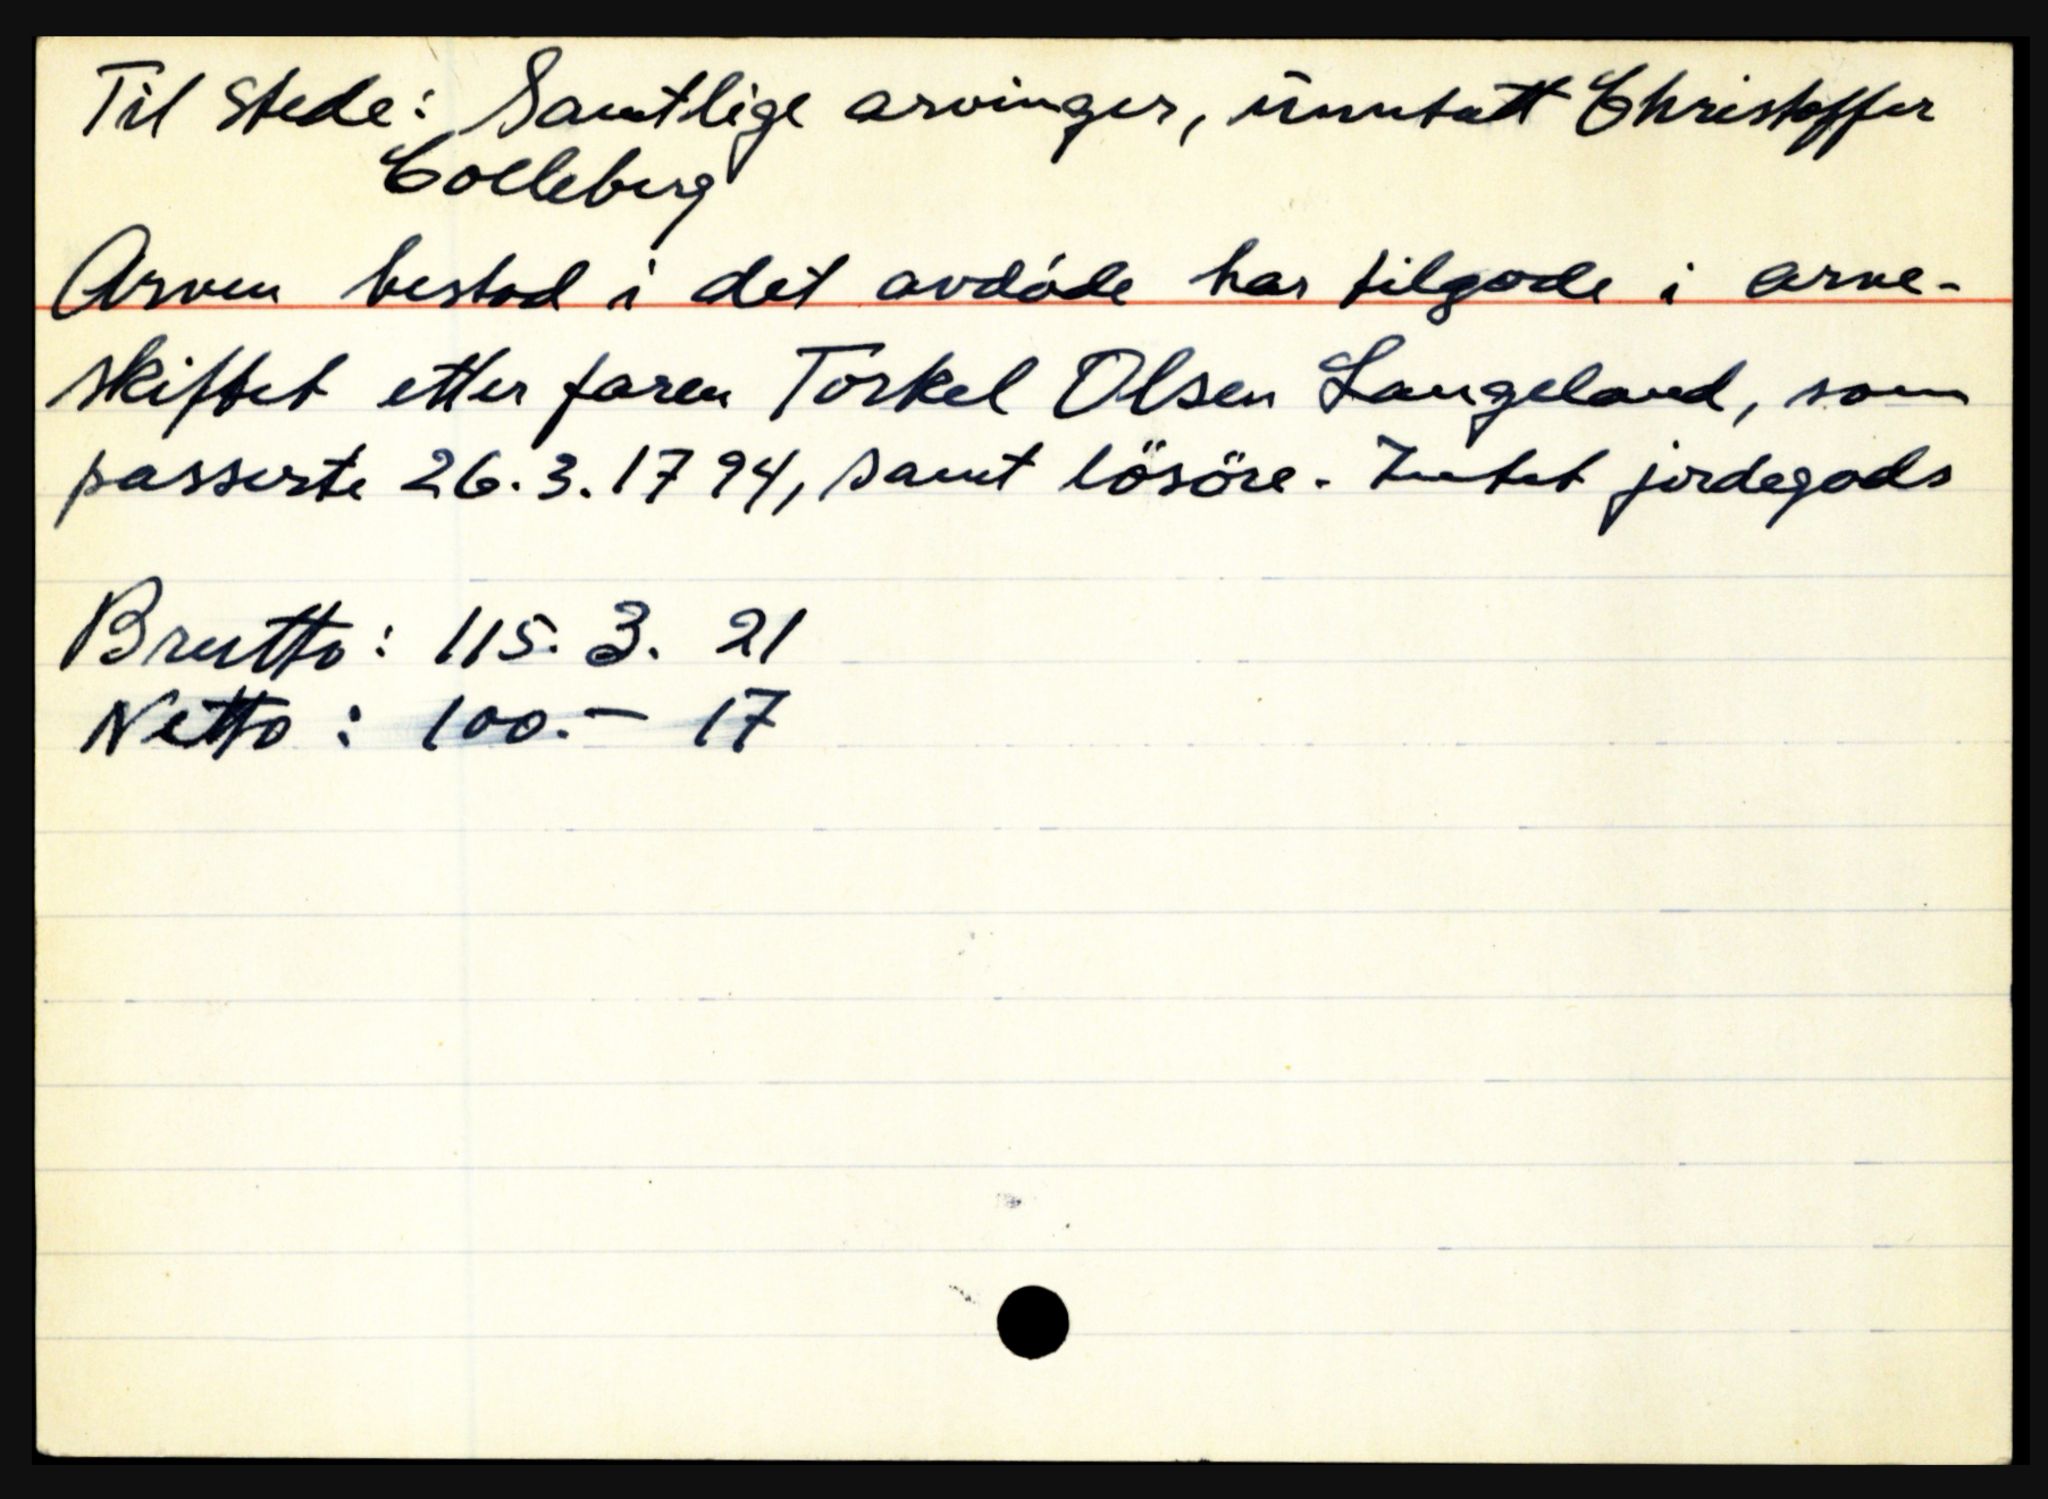 Til stede: Samtlige arvinger, unntatt Christoffer
Colleberg
Arven bestod i det avdøde har tilgode i arve-
skiftet etter faren Torkel Olsen Langeland, som
passerte 26.3.1794, samt lösöre. Intet jordegods
Brutto: 115. 3. 21
Netto: 100. – 17